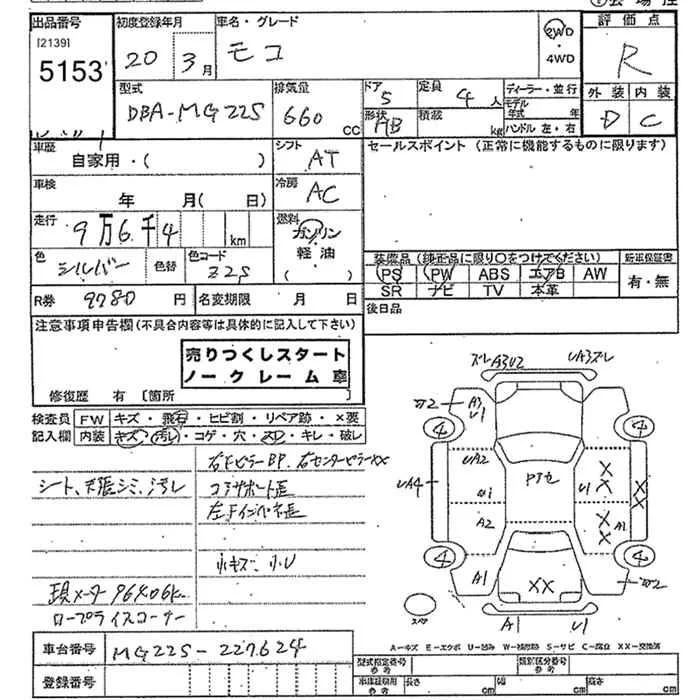 会場
出品番号
[2139]
5153
初度登録年月
20 3月
車名・グレード
モコ
2WD
・
4WD
評価点
R
外装 内装
D C
型式
DBA-MG22S
排気量
660 CC
ドア
5
形状
HB
定員
4人
積載
kg
ディーラー・並行
モデル年式 年
ハンドル 左・右
車歴
自家用・( )
シフト
AT
セールスポイント (正常に機能するものに限ります)
車検
年 月( 日)
冷房
AC
走行
9万6千4 km
燃料
ガソリン
・
軽油
( )
色
シルバー
色替
色コード
Z2S
装備品 (純正品に限り○をつけてください)
PS PW ABS エアB AW
SR ナビ TV 本革
新車保証書
有・無
R券 9780 円
名変期限 月 日
後日品
注意事項申告欄 (不具合内容等は具体的に記入して下さい)
売りつくしスタート
ノークレーム車
修復歴 有 [箇所
検査員
記入欄
FW キズ・飛石・ヒビ割・リペア跡・×要
内装 キズ・汚レ・コゲ・穴・スレ・キレ・破レ
右FピラーBP、右センターピラーXX
シート、天張シミ、汚レ
コアサポート歪
左Fインパネ歪
小キズ、小U
現メーター 96406km
ロープライスコーナー
ズレA3U2
UA3ズレ
A3
U1
4
4
UA2
UA4
U1
A2
A1
U1
X
X
X
X
X
X
A1
4
4
XX
スペア
A1
U1
A-キズ E-エクボ U-凹み W-補修跡 S-サビ C-腐食 XX-交換済
車台番号
MG22S-227624
登録番号
型式指定番号
参考
類別区分番号
参考
車体寸法用
参考
長さ cm
幅 cm
高さ cm